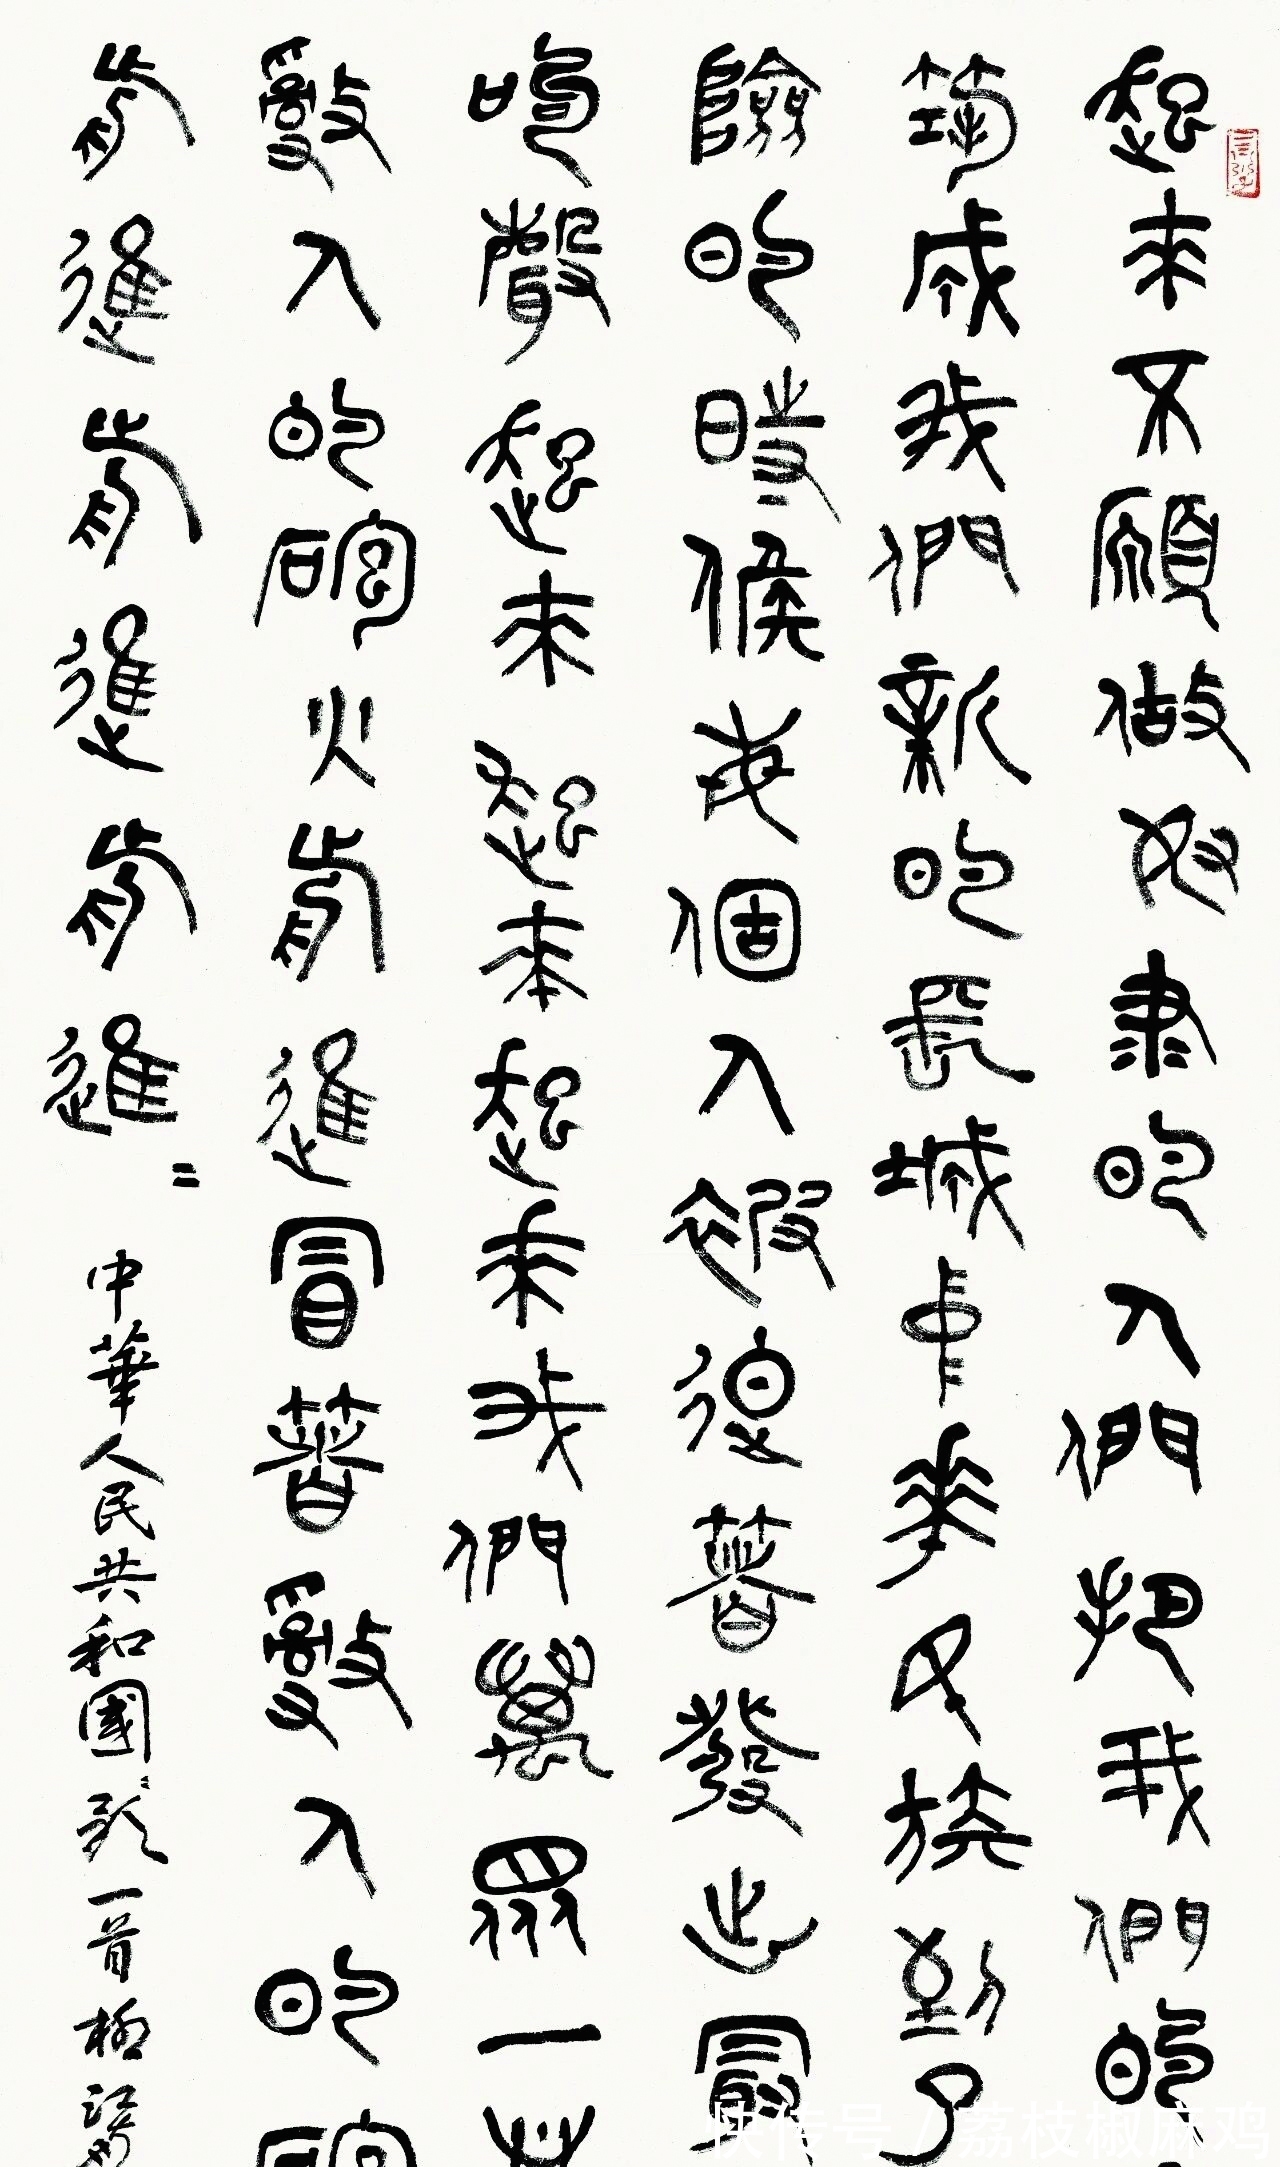 起來不願做奴隸的人們把我們的
築成我們新的長城中華民族到了
險的時候每個人被迫着發出最
吼聲起來起來起來我們萬眾一心
敵人的砲火前進冒着敵人的砲
前進前進前進〻 中華人民共和國〻歌一首
快传号 / 荔枝椒麻鸡